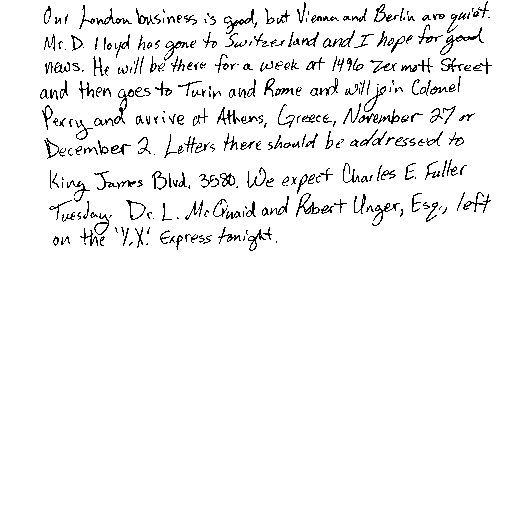 Our London business is good, but Vienna and Berlin are quiet.
Mr. D. Lloyd has gone to Switzerland and I hope for good
news. He will be there for a week at 1496 Zermott Street
and then goes to Turin and Rome and will join Colonel
Perry and arrive at Athens, Greece, November 27 or
December 2. Letters there should be addressed to
King James Blvd. 3580. We expect Charles E. Fuller
Tuesday. Dr. L. McQuaid and Robert Unger, Esq., left
on the 'Y.X.' Express tonight.